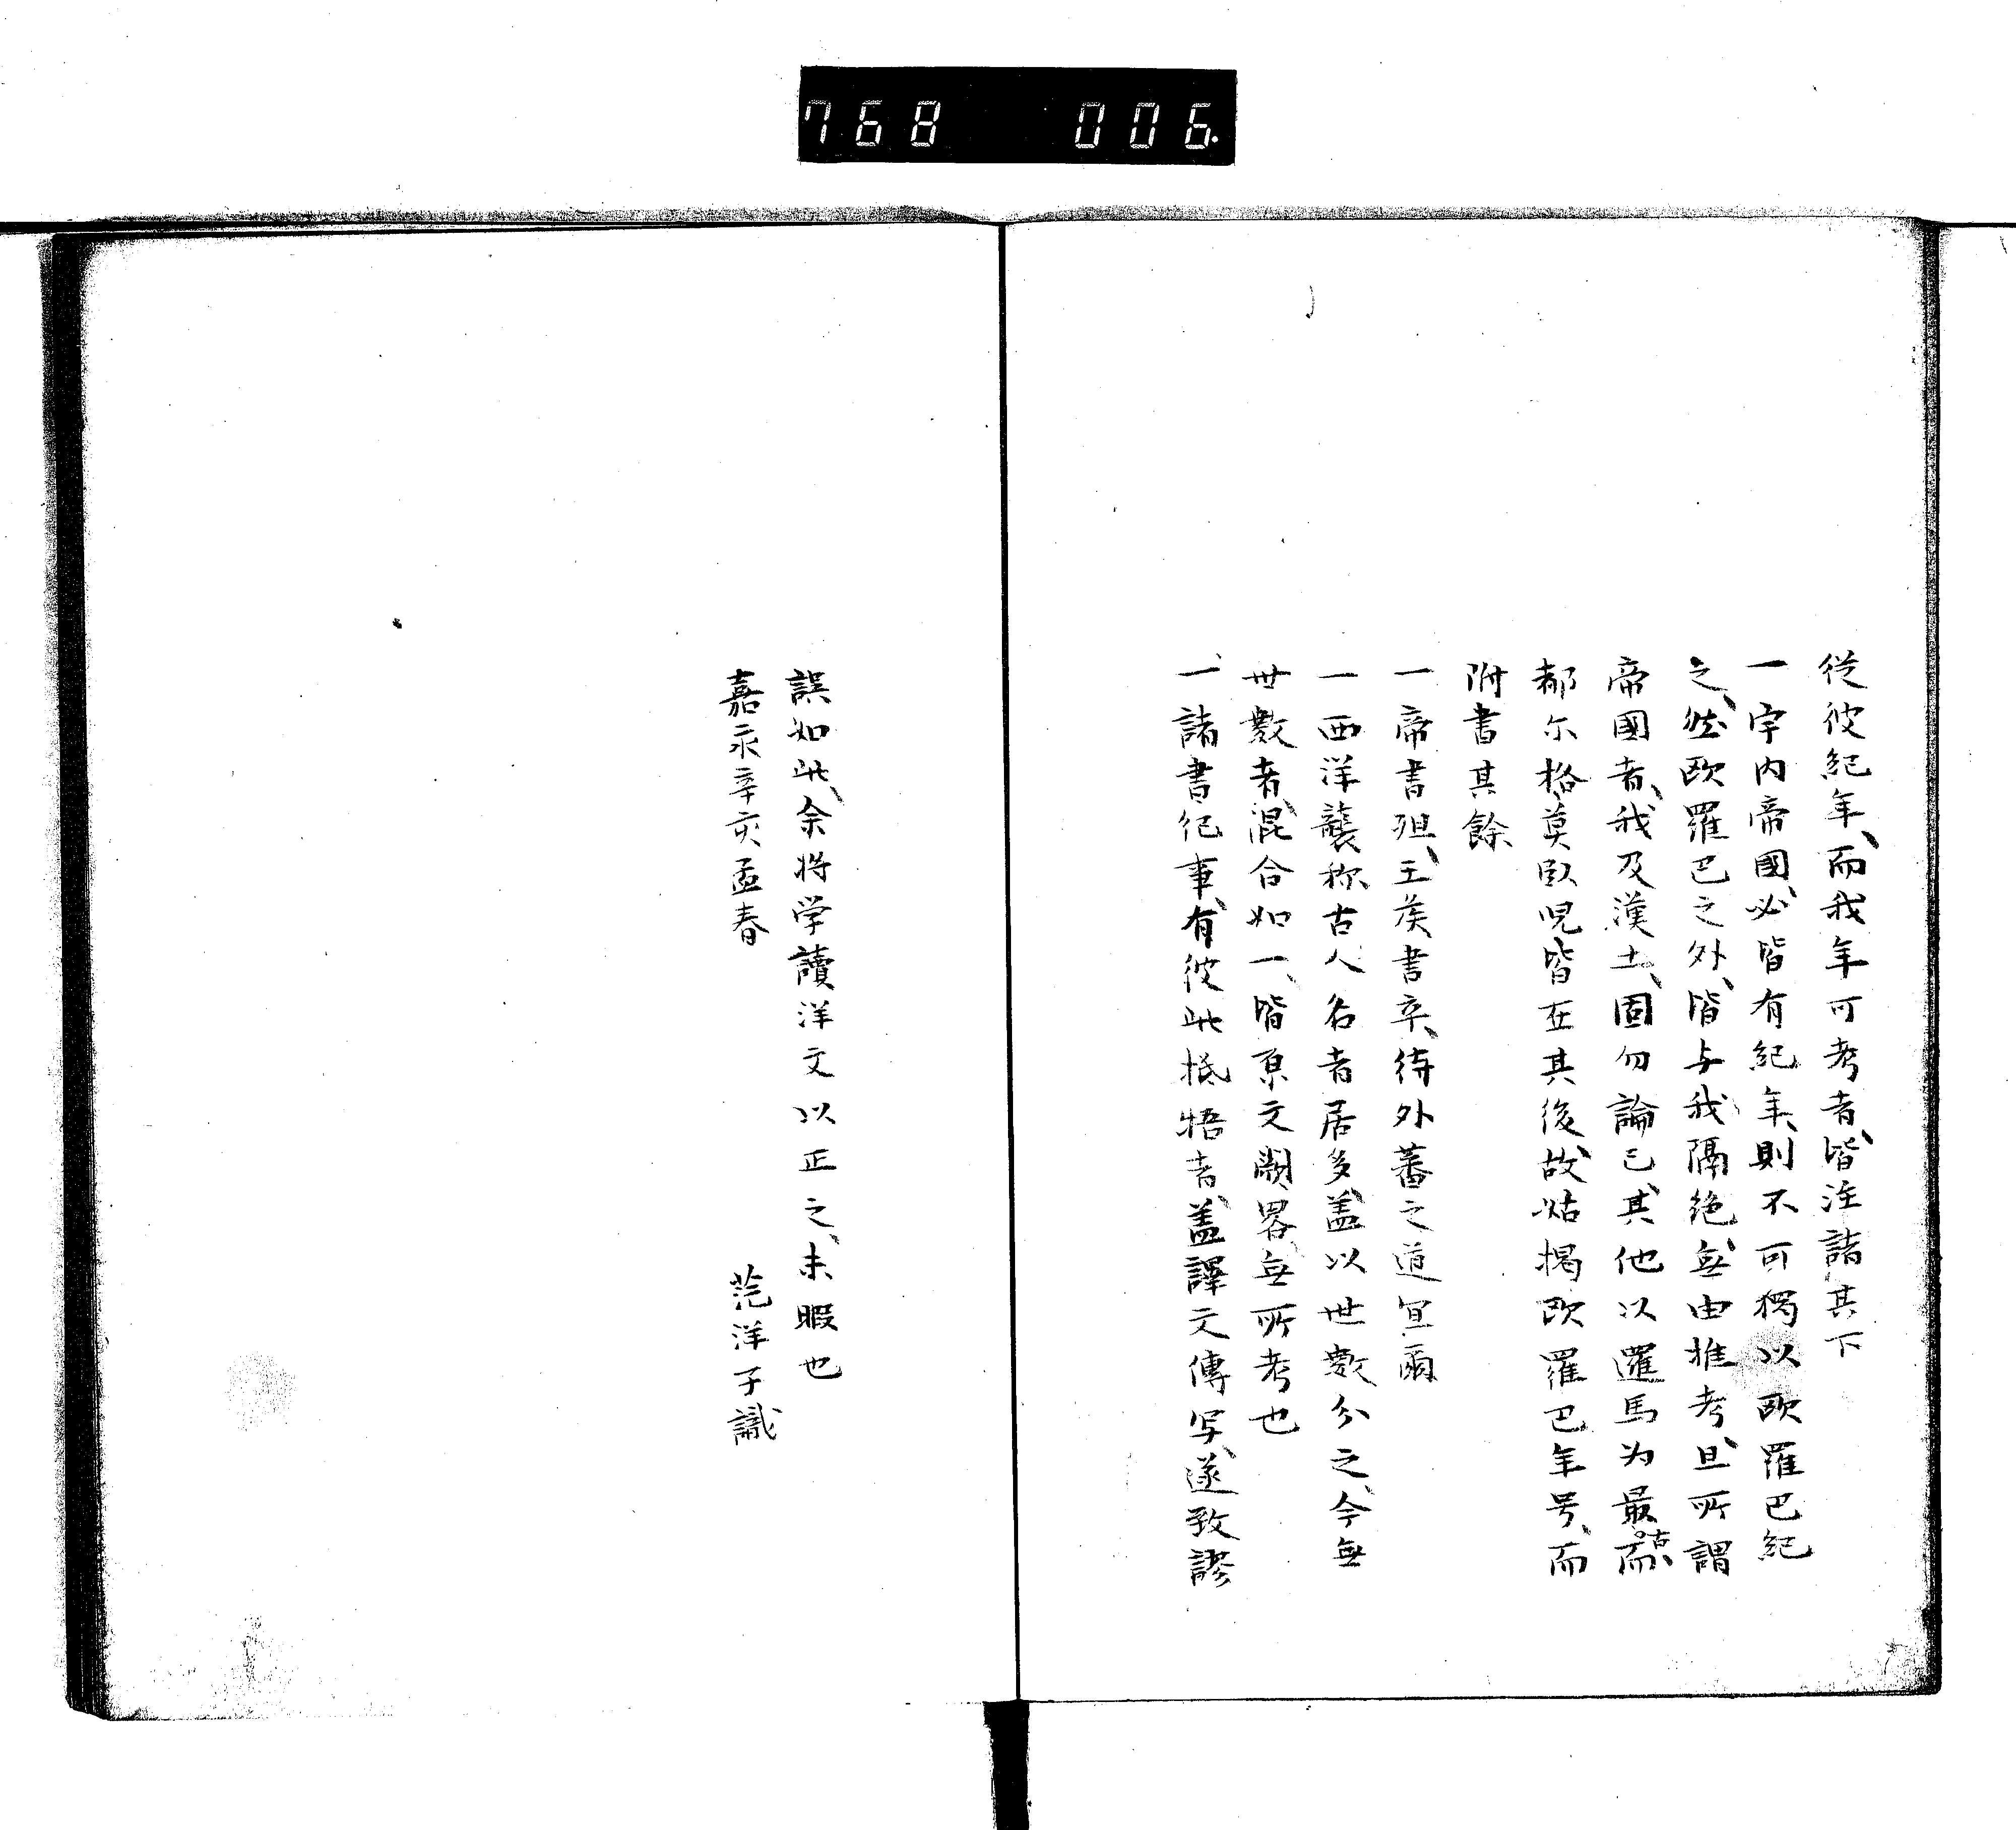 768 006
従彼紀年、而我年可考者、皆注諸其下
一宇内帝國、必皆有紀年、則不可獨以欧羅巴紀
之、然欧羅巴之外、皆与我隔絶、無由推考、且所謂
帝國者、我及漢土、固勿論已、其他以邏馬为最古、而
都尓格莫臥児、皆在其後、故姑掲欧羅巴年号、而
附書其餘
一帝書殂、王矦書卒、待外蕃之道冝爾
一西洋襲称古人名者居多、盖以世數分之、今無
世數者、混合如一、皆原文闕畧、無所考也
一諸書紀事、有彼此抵牾者、盖譯文傳写、遂致謬
誤如此、余将学讀洋文以正之、未暇也
嘉永辛亥孟春 茫洋子識